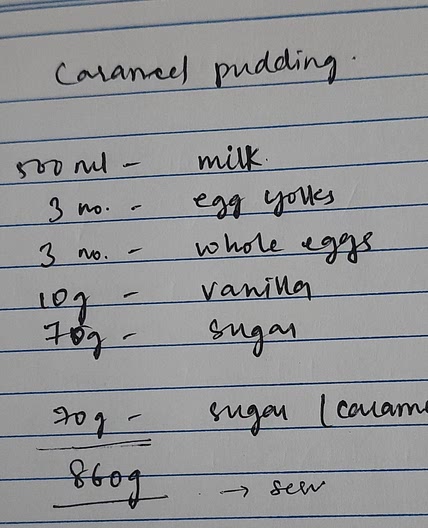 Caramel pudding.
500 ml - milk.
3 no. - egg yolks
3 no. - whole eggs
10g - vanilla
70g - sugar
70g - sugar (carame
860g → serv